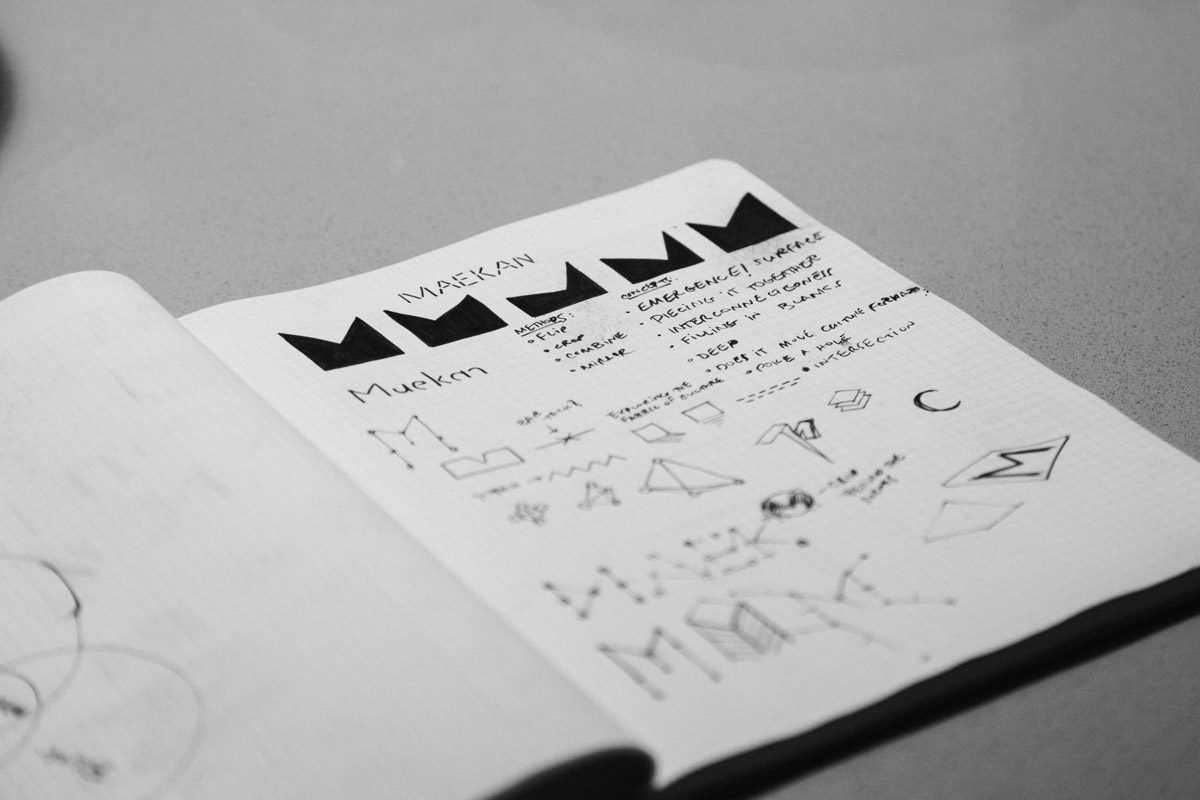 MAEKAN
METHODS:
• FLIP
• CROP
• COMBINE
• MIRROR
CONCEPTS:
• EMERGENCE/ SURFACE
• PIECING IT TOGETHER
• INTERCONNECTEDNESS
• FILLING IN BLANKS
• DEEP
• DOES IT MOVE CULTURE FORWARD?
• POKE A HOLE
• INTERSECTION
Maekan
M
EXPLORING THE
FABRIC OF CULTURE
C
M
MAEK
M